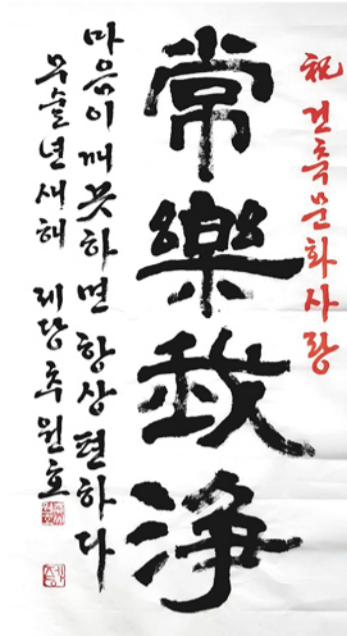 祝 건축문화사랑
常樂我淨
마음이 깨끗하면 항상 편하다
무술년새해 레당 추원호